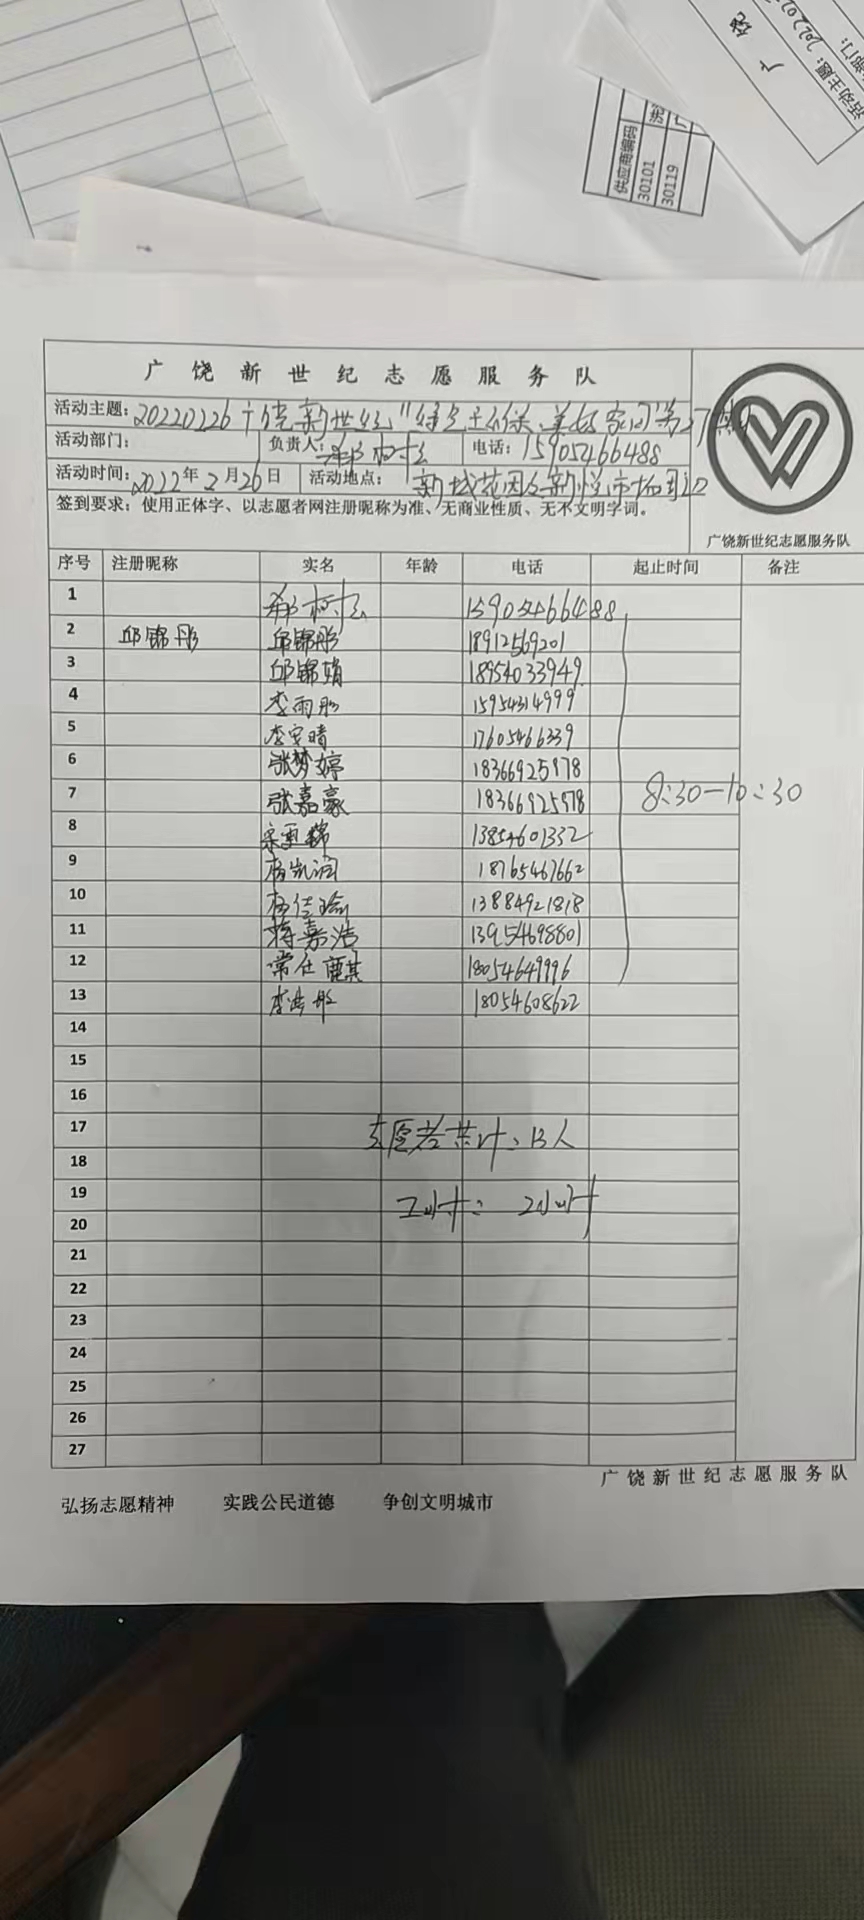 广饶
活动主题：202202
部门：
供应商编码
30101
30119
广饶新世纪志愿服务队
活动主题：20220226广饶新世纪"绿色环保、美好家园"第27期
活动部门： 负责人： 电话：15905466488
活动时间：2022年2月26日 活动地点：新城花园及新悦市场周边
签到要求：使用正体字、以志愿者网注册昵称为准、无商业性质、无不文明字词。
广饶新世纪志愿服务队
序号 注册昵称 实名 年龄 电话 起止时间 备注
1 15905466488
2 邱锦彤 邱锦彤 18912569201
3 邱锦娟 18954033949
4 李雨彤 15954314999
5 李安晴 17605466339
6 张梦婷 18366925978
7 张嘉豪 18366925978
8:30—10:30
8 13854601332
9 杨凯润 18765467662
10 杨佳瑜 13884921818
11 蒋嘉浩 13954698801
12 常仕麒 18054649996
13 18054608622
14
15
16
17
志愿者共计：13人
18
19
工时：2小时
20
21
22
23
24
25
26
27
广饶新世纪志愿服务队
弘扬志愿精神 实践公民道德 争创文明城市